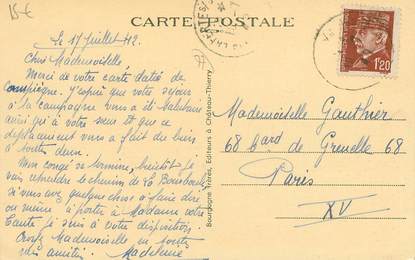 15 €
CARTE POSTALE
Le 17 Juillet 42.
Chère Mademoiselle
Merci de votre carte datée de
Compiègne. J'espère que votre séjour
à la campagne vous a été salutaire
ainsi qu'à votre sœur et que ce
déplacement vous a fait du bien
à toutes deux.
Mon congé se termine, bientôt je
vais reprendre le chemin de
si vous avez quelque chose à faire dire
ou même à porter à Madame votre
Tante je suis à votre disposition.
Mademoiselle
amitiés. Madeleine
Bourgogne Frères, Editeurs à Château-Thierry
1f20
Mademoiselle Gauthier
68 Bard de Grenelle 68
Paris
XV